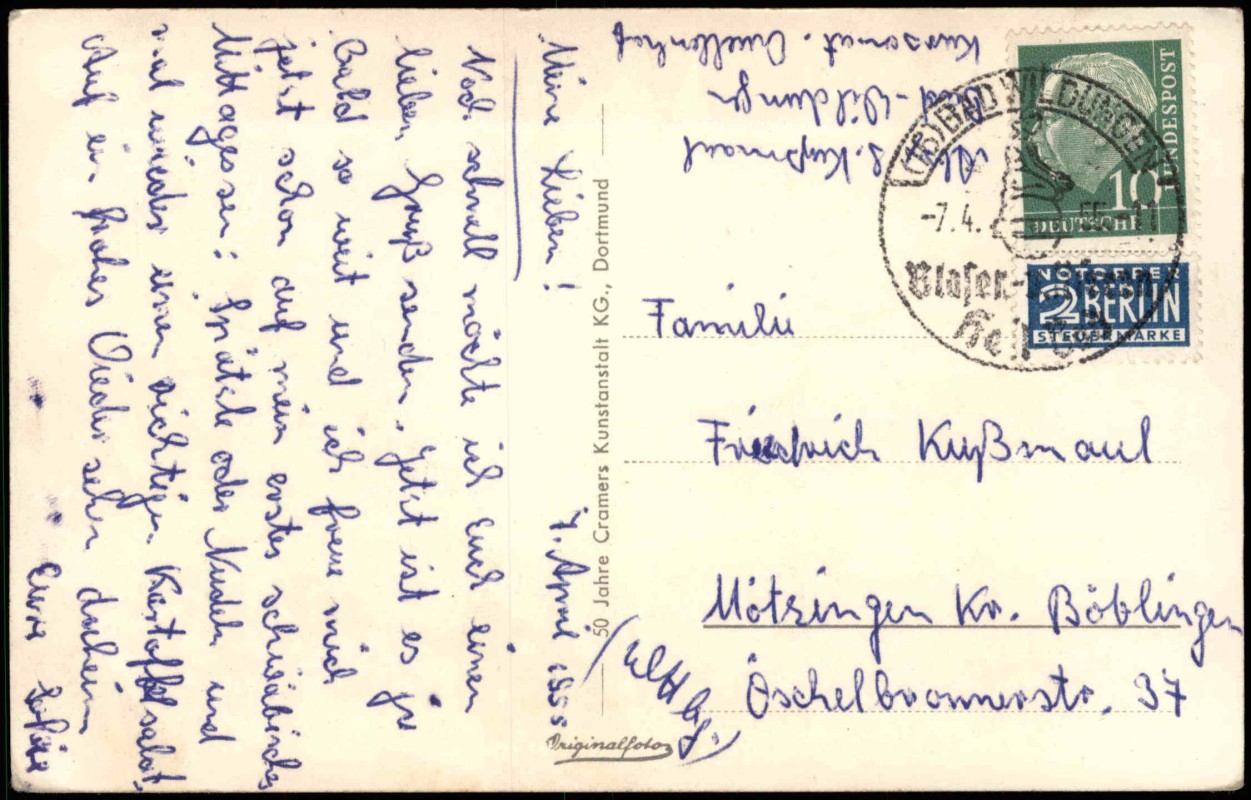 7. April 1955
Meine Lieben!
Noch schnell möchte ich Euch einen
lieben Gruß senden. Jetzt ist es ja
Bald so weit und ich freue mich
jetzt schon auf mein erstes schwäbisches
Mittagessen! Spätzle oder Nudeln und
mal wieder einen richtigen Kartoffelsalat.
Auf ein frohes Wieder sehen daheim
Eure
50 Jahre Cramers Kunstanstalt KG., Dortmund
Originalfoto
Abs. S. Kußmaul
Bad-Wildungen
Kursanat. Quellenhof
(16) BAD WILDUNGEN
-7.4.55.-11
Blasen-
DEUTSCHE BUNDESPOST
10
NOTOPFER
2 BERLIN
STEUERMARKE
Familie
Friedrich Kußmaul
Mötzingen Kr. Böblingen
Öschelbronnerstr. 37
(Wttbg.)